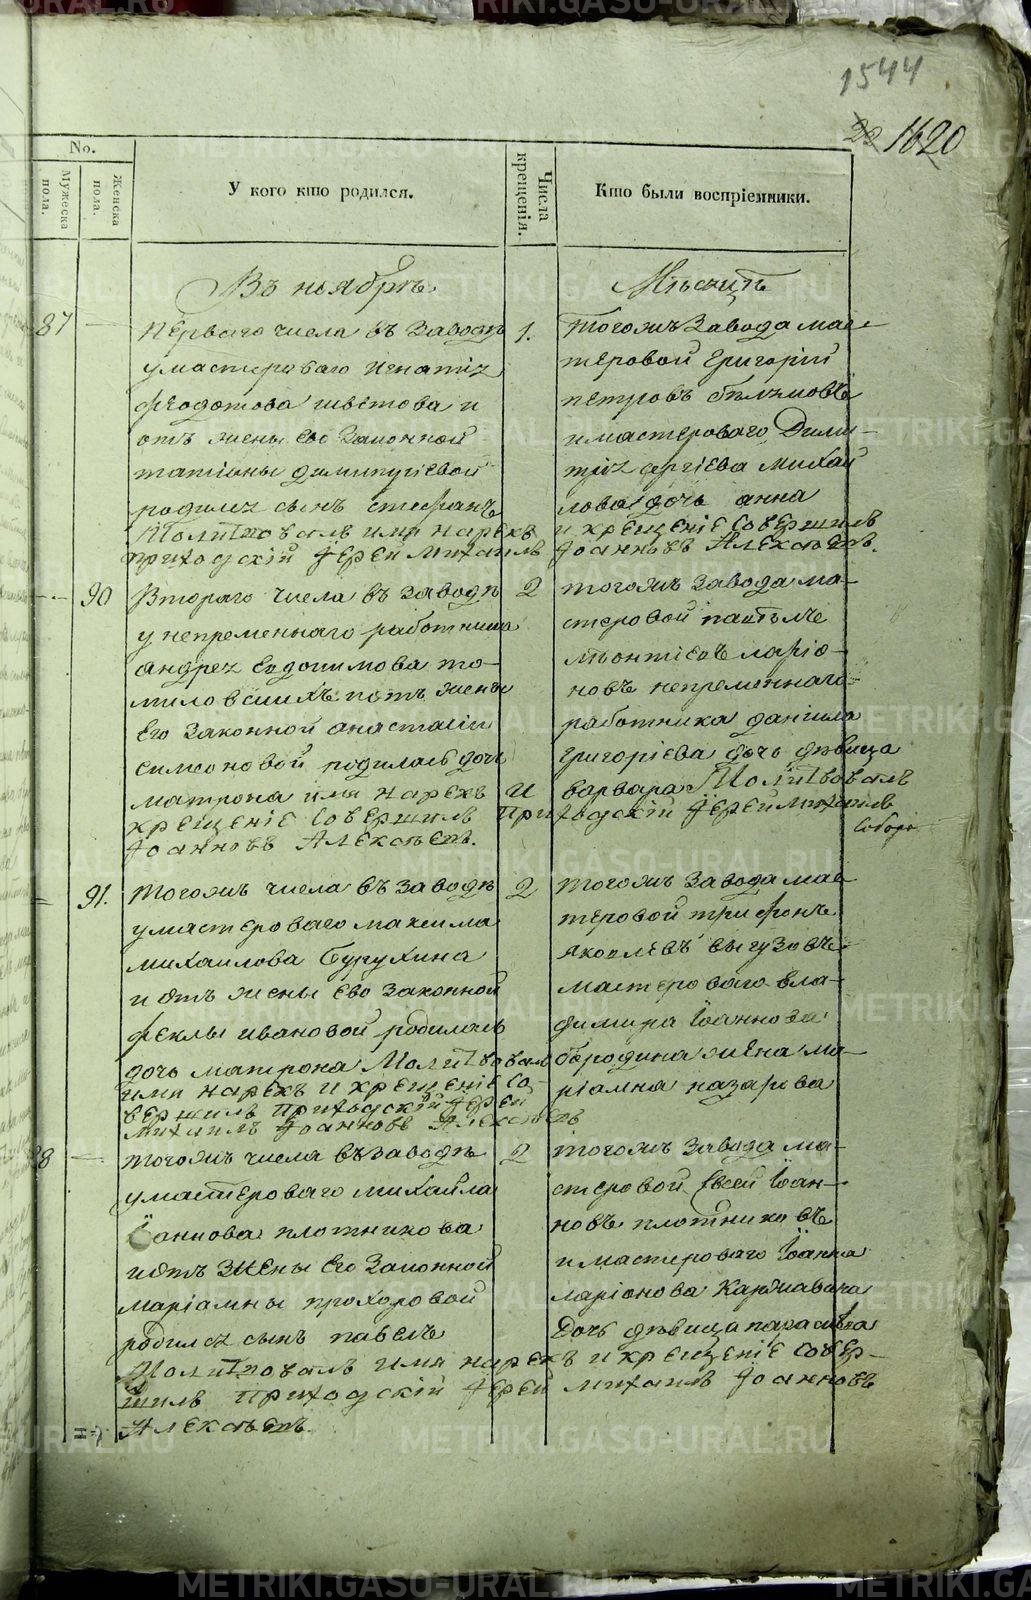 1544
22 1620
No.
Мужеска пола.
Женска пола.
У кого кто родился.
Числа крещенія.
Кто были воспріемники.
Въ ноябрѣ
Мѣсяцѣ
87
перваго числа въ заводѣ
у мастероваго игнатія
феодотова
отъ жены его законной
татіаны димитріевой
родился сынъ стефанъ
Молитвовалъ имя нарекъ и крещеніе совершилъ
приходскій Іерей Михаилъ Іоанновъ Алексѣевъ.
1.
тогожъ завода мас-
теровой григорій
петровъ
и мастероваго Дими-
трія сергіева михай
лова дочь анна
90
Втораго числа въ заводѣ
у непременнаго работника
андрея евдокимова то-
миловскихъ и отъ жены
его законной анастасіи
симоновой родилась дочь
матрона имя нарекъ и
крещеніе совершилъ приходскій Іерей Михаилъ
Іоанновъ Алексѣевъ.
2
тогожъ завода ма-
стеровой павелъ
леонтіевъ ларіо-
новъ непременнаго
работника даніила
григоріева дочь дѣвица
варвара Молитвовалъ
91.
тогожъ числа въ заводѣ
у мастероваго максима
михаилова бурухина
и отъ жены его законной
феклы ивановой родилась
дочь матрона Молитвовалъ
имя нарекъ и крещеніе со-
вершилъ приходскій Іерей
Михаилъ Іоанновъ Алексѣевъ
2
тогожъ завода мас-
теровой трифонъ
яковлевъ выгузовъ
мастероваго вла-
димира іоаннова
бородина жена ма-
ріамна назарова
88
тогожъ числа въ заводѣ
у мастероваго михаила
іоаннова плотникова
и отъ жены его законной
маріамны прохоровой
родился сынъ павелъ
Молитвовалъ имя нарекъ и крещеніе совер-
шилъ приходскій Іерей Михаилъ Іоанновъ
Алексѣевъ.
2
тогожъ завода ма-
стеровой евсей іоан-
новъ плотниковъ
и мастероваго іоанна
ларіонова каржавина
дочь дѣвица параскева
METRIKI.GASO-URAL.RU